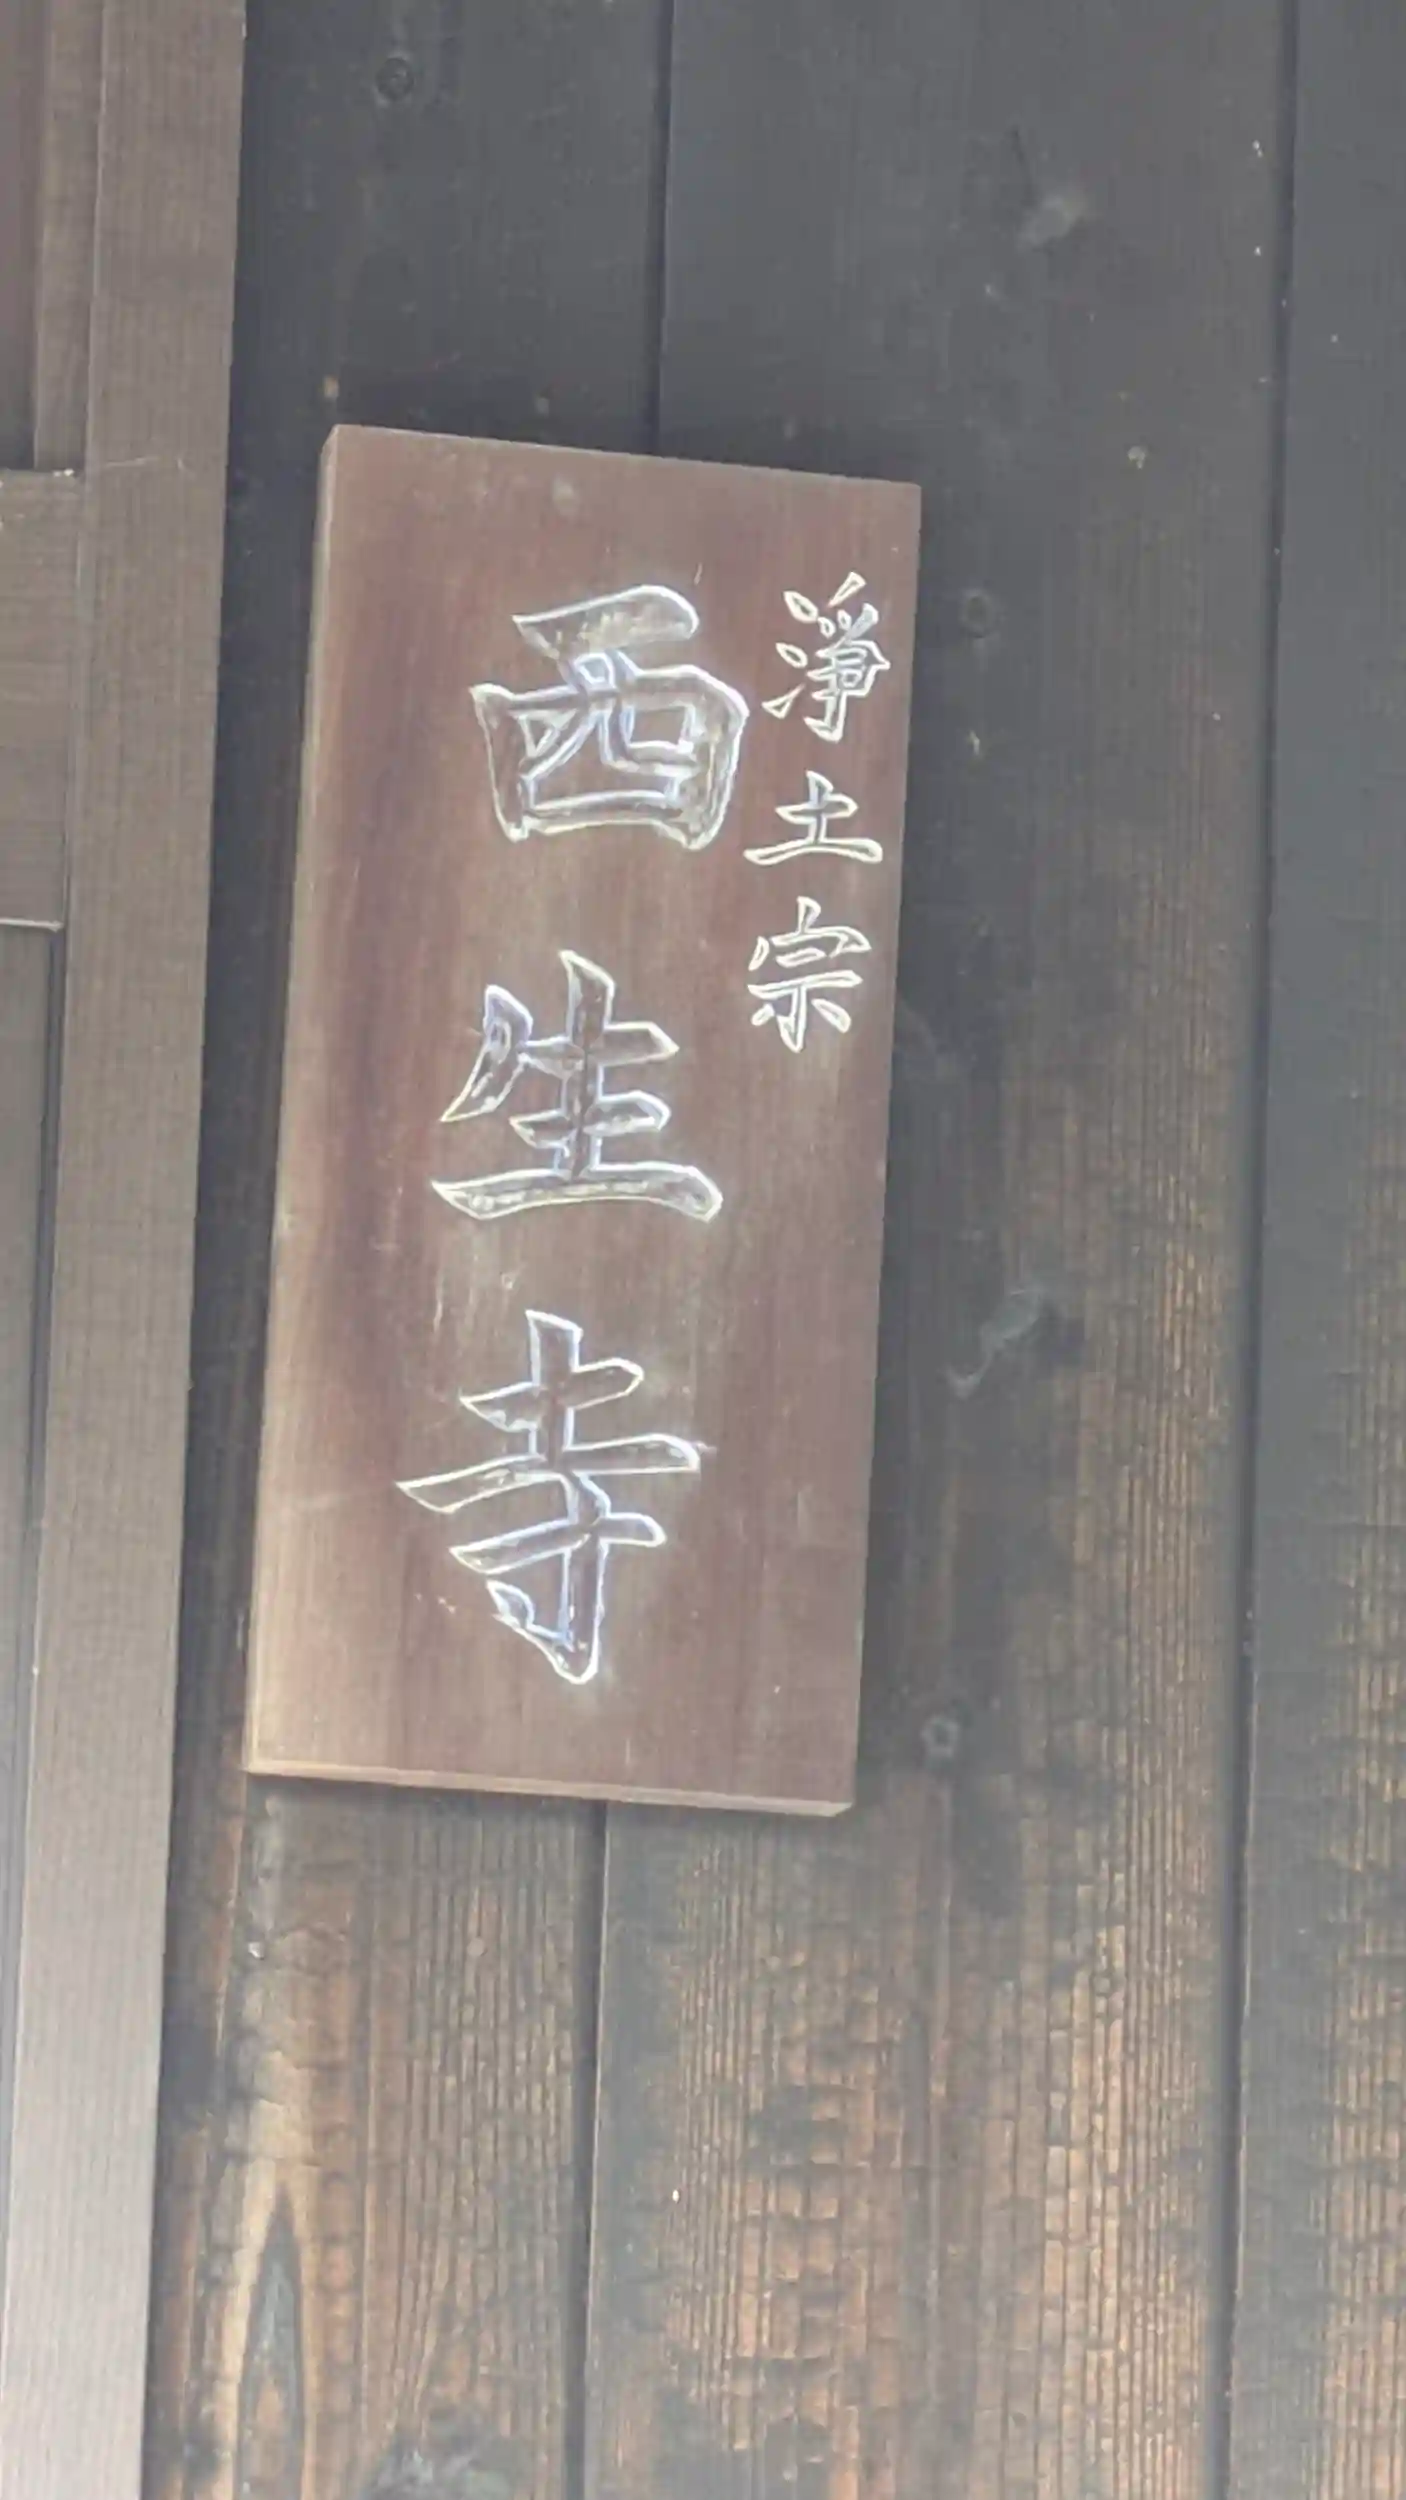 淨土宗
西生寺